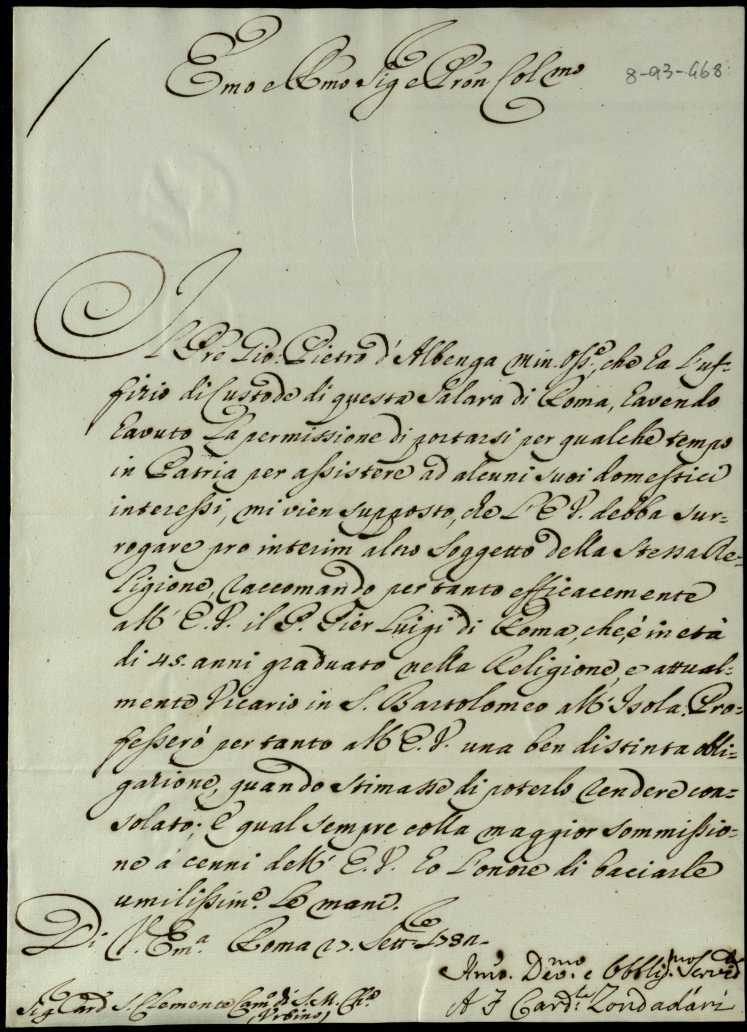 Emo e Rmo Sig e Pron Col mo
8-93-468
Il Pre Gio: Pietro d'Albenga Min. Oss.e, che ha l'uf=
fizio di Custode di questa Salara di Roma, havendo
havuto la permissione di portarsi per qualche tempo
in Patria per assistere ad alcuni suoi domestici
interessi, mi vien supposto, che l'E.V. debba sur=
rogare pro interim altro Soggetto della stessa Re=
ligione, raccomando per tanto efficacemente
all' E.V. il P. Pier Luigi di Roma, che, è in età
di 45. anni graduato nella Religione, e attual=
mente Vicario in S. Bartolomeo all' Isola. Pro=
fesserò per tanto all' E.V. una ben distinta obli=
gazione, quando stimasse di poterlo rendere con=
solato; E qual sempre colla maggior sommissio=
ne a' cenni dell' E.V. ho l'onore di baciarle
umilissim.e le mani.
Di V. Em.a Roma Sett.e
Dev.mo e Obblig.mo Serv.
Sig Card S. Clemente
(Urbino)
A F Card.le Zondadari